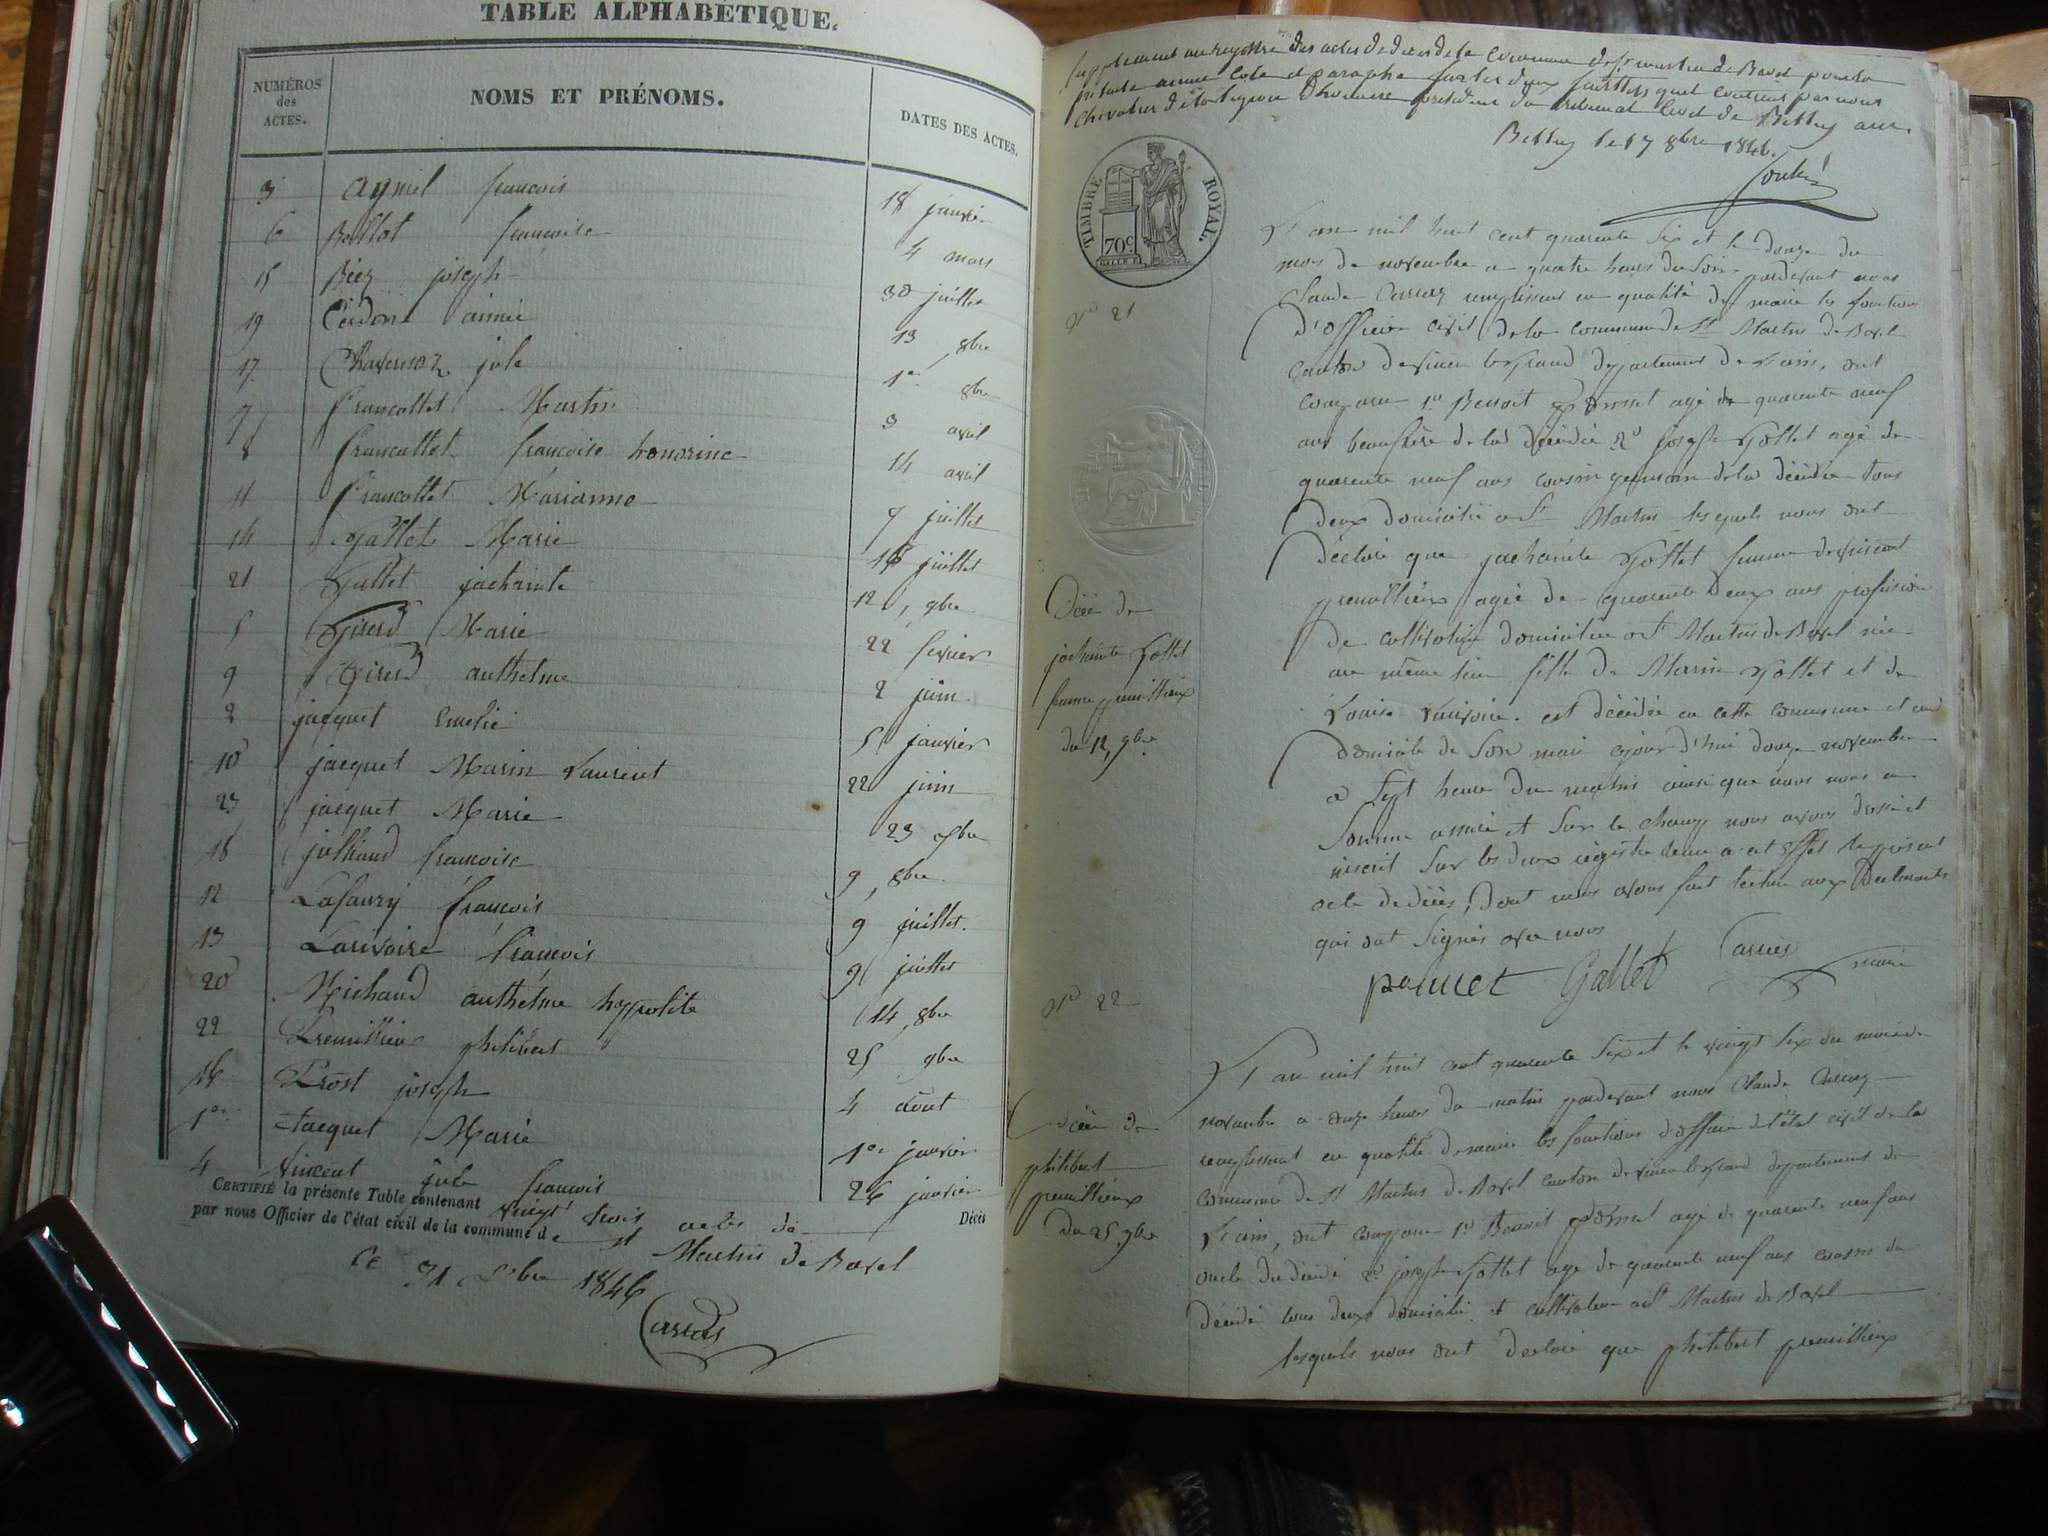 TABLE ALPHABÉTIQUE.
NUMÉROS des ACTES.
NOMS ET PRÉNOMS.
DATES DES ACTES.
3 françois 18 janvier
6 Ballot françoise 4 mars
15 Biez joseph 30 juillet
19 aimée 13 8bre
17 jule 1er 8bre
7 francollet Martin 3 avril
8 francollet françoise honorine 14 avril
11 francollet Marianne 7 juillet
14 Gallet Marie 18 juillet
21 Gallet jachainte 12, 9bre
5 Girerd Marie 22 fevrier
9 Girerd anthelme 2 juin
2 jacquet Emelie 5 janvier
10 jacquet Marin Laurent 22 juin
23 jacquet Marie 23 9bre
18 julliand françoise 9, 8bre
12 Lafaury François 9 juillet.
13 Larivoire François 9 juillet
20 Michaud anthelme hyppolite 14, 8bre
22 Premillieux philibert 25 9bre
16 Prost joseph 4 aout
1er Jacquet Marie 1er janvier
4 Vincent jule françois 26 janvier
CERTIFIÉ la présente Table contenant vingt trois actes de Décès
par nous Officier de l'état civil de la commune de St Martin de Bavel
Ce 31 Xbre 1846
Supplement au registre des actes de deces de la Commune de St martin de Bavel pour la
presente année Coté et paraphé sur les deux feuillets quil contient par nous
Chevalier de la légion d'honneur president du tribunal Civil de Belley
Belley le 17 8bre 1846.
TIMBRE ROYAL.
70c
No 21
L'an mil huit cent quarente six et le douze du
mois de novembre a quatre heures du Soir pardevant nous
Claude remplissant en qualité de maire les fonctions
d'officier civil de la commune de St Martin de Bavel
Canton de virieu le Grand departement de L'ain, ont
comparu 1o Benoit agé de quarente neuf
ans beaufrère de la décédée 2o joseph Gallet agé de
quarente neuf ans cousin germain de la décédée tous
deux domicilié a St Martin lesquels nous ont
déclaré que jachainte Gallet femme de vincent
premillieux agée de quarente deux ans profession
de cultivatrice domiciliée a St Martin de Bavel née
au même lieu fille de Marin Gallet et de
Louise Larivoire. est décédée en cette commune et au
domicile de Son mari cejour d'hui douze novembre
a Sept heure du matin ainsi que nous nous en
Somme assuré et Sur le champ nous avons dressé et
inscrit Sur les deux régistre tenue a cet effet le present
acte de décès, dont nous avons fait lecture aux déclarants
qui ont Signés avec nous
Gallet maire
Décé de
jachainte Gallet
femme premillieux
du 12, 9bre
No 22
L'an mil huit cent quarente Six et le vingt Six du mois de
novembre a onze heures du matin pardevant nous Claude
remplissant en qualité de maire les fonctions d'officier de l'état civil de la
commune de St Martin de Bavel canton de virieu le grand departement de
L'ain, ont comparu 1o Benoit agé de quarente neuf ans
oncle du décédé 2o joseph Gallet agé de quarente neuf ans cousin du
décédé tous deux domicilié et cultivateur a St Martin de Bavel
lesquels nous ont declaré que philibert premillieux
Décé de
philibert
premillieux
du 25 9bre